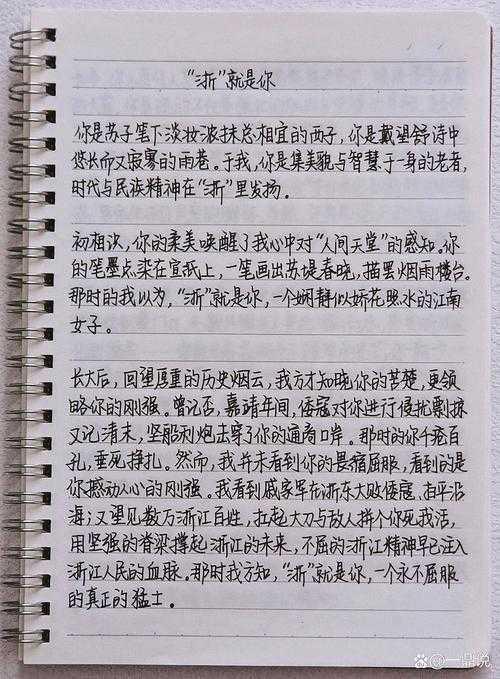 “浙”就是你
你是苏子笔下淡妆浓抹总相宜的西子，你是戴望舒诗中
悠长而又寂寥的雨巷。于我，你是集美貌与智慧于一身的老者，
时代与民族精神在“浙”里发扬。
初相识，你的柔美唤醒了我心中对“人间天堂”的感知。你
的笔墨点染在宣纸上，一笔画出苏堤春晓，描罢烟雨楼台。
那时的我以为，“浙”就是你，一个娴静似娇花照水的江南
女子。
长大后，回望厚重的历史烟云，我方才知晓你的苦楚，更领
略你的刚强。曾记否，嘉靖年间，倭寇对你进行侵扰剽掠
又记清末，坚船利炮击穿了你的通商口岸。那时的你千疮百
孔，垂死挣扎。然而，我并未看到你的畏缩屈服，看到的是
你撼动人心的刚强。我看到戚家军在浙东大败倭寇，扫平沿
海；又望见数万浙江百姓，扛起大刀与敌人拼个你死我活，
用坚强的脊梁撑起浙江的未来，不屈的浙江精神早已注入
浙江人民的血脉。那时我方知，“浙”就是你，一个永不屈服
的真正的猛士。
Bai百度@一鼎说